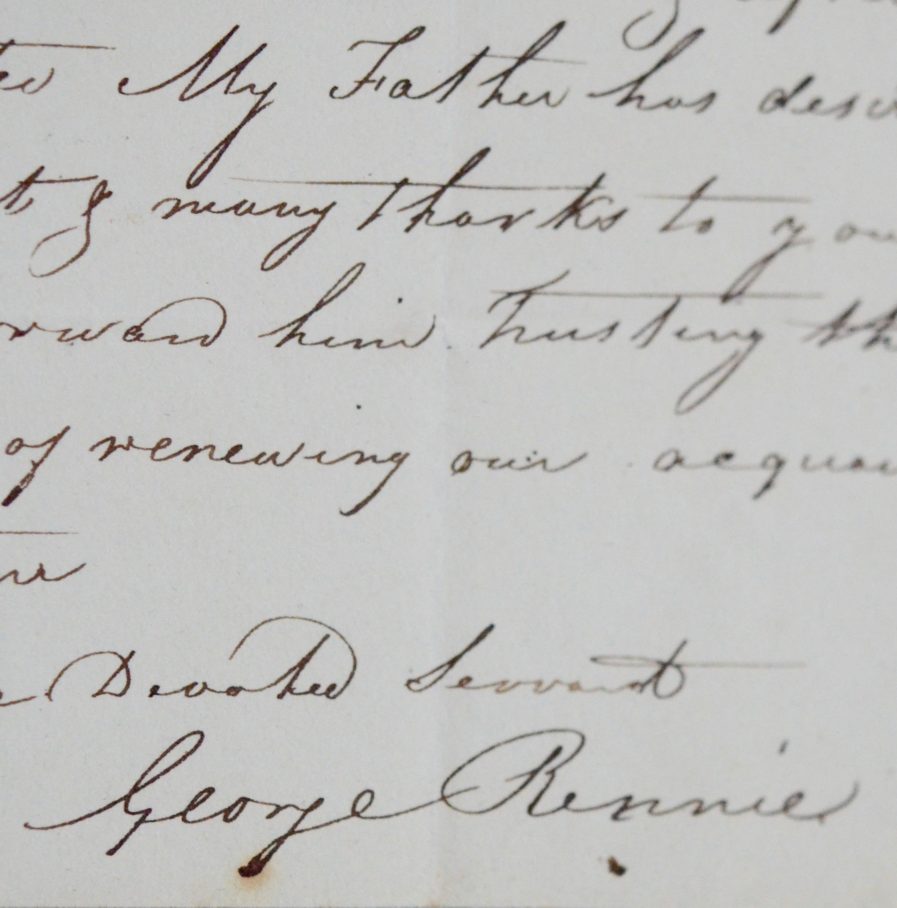 My Father has
& many thanks to you
him trusting th
of renewing our acquai
Devoted Servant
George Rennie